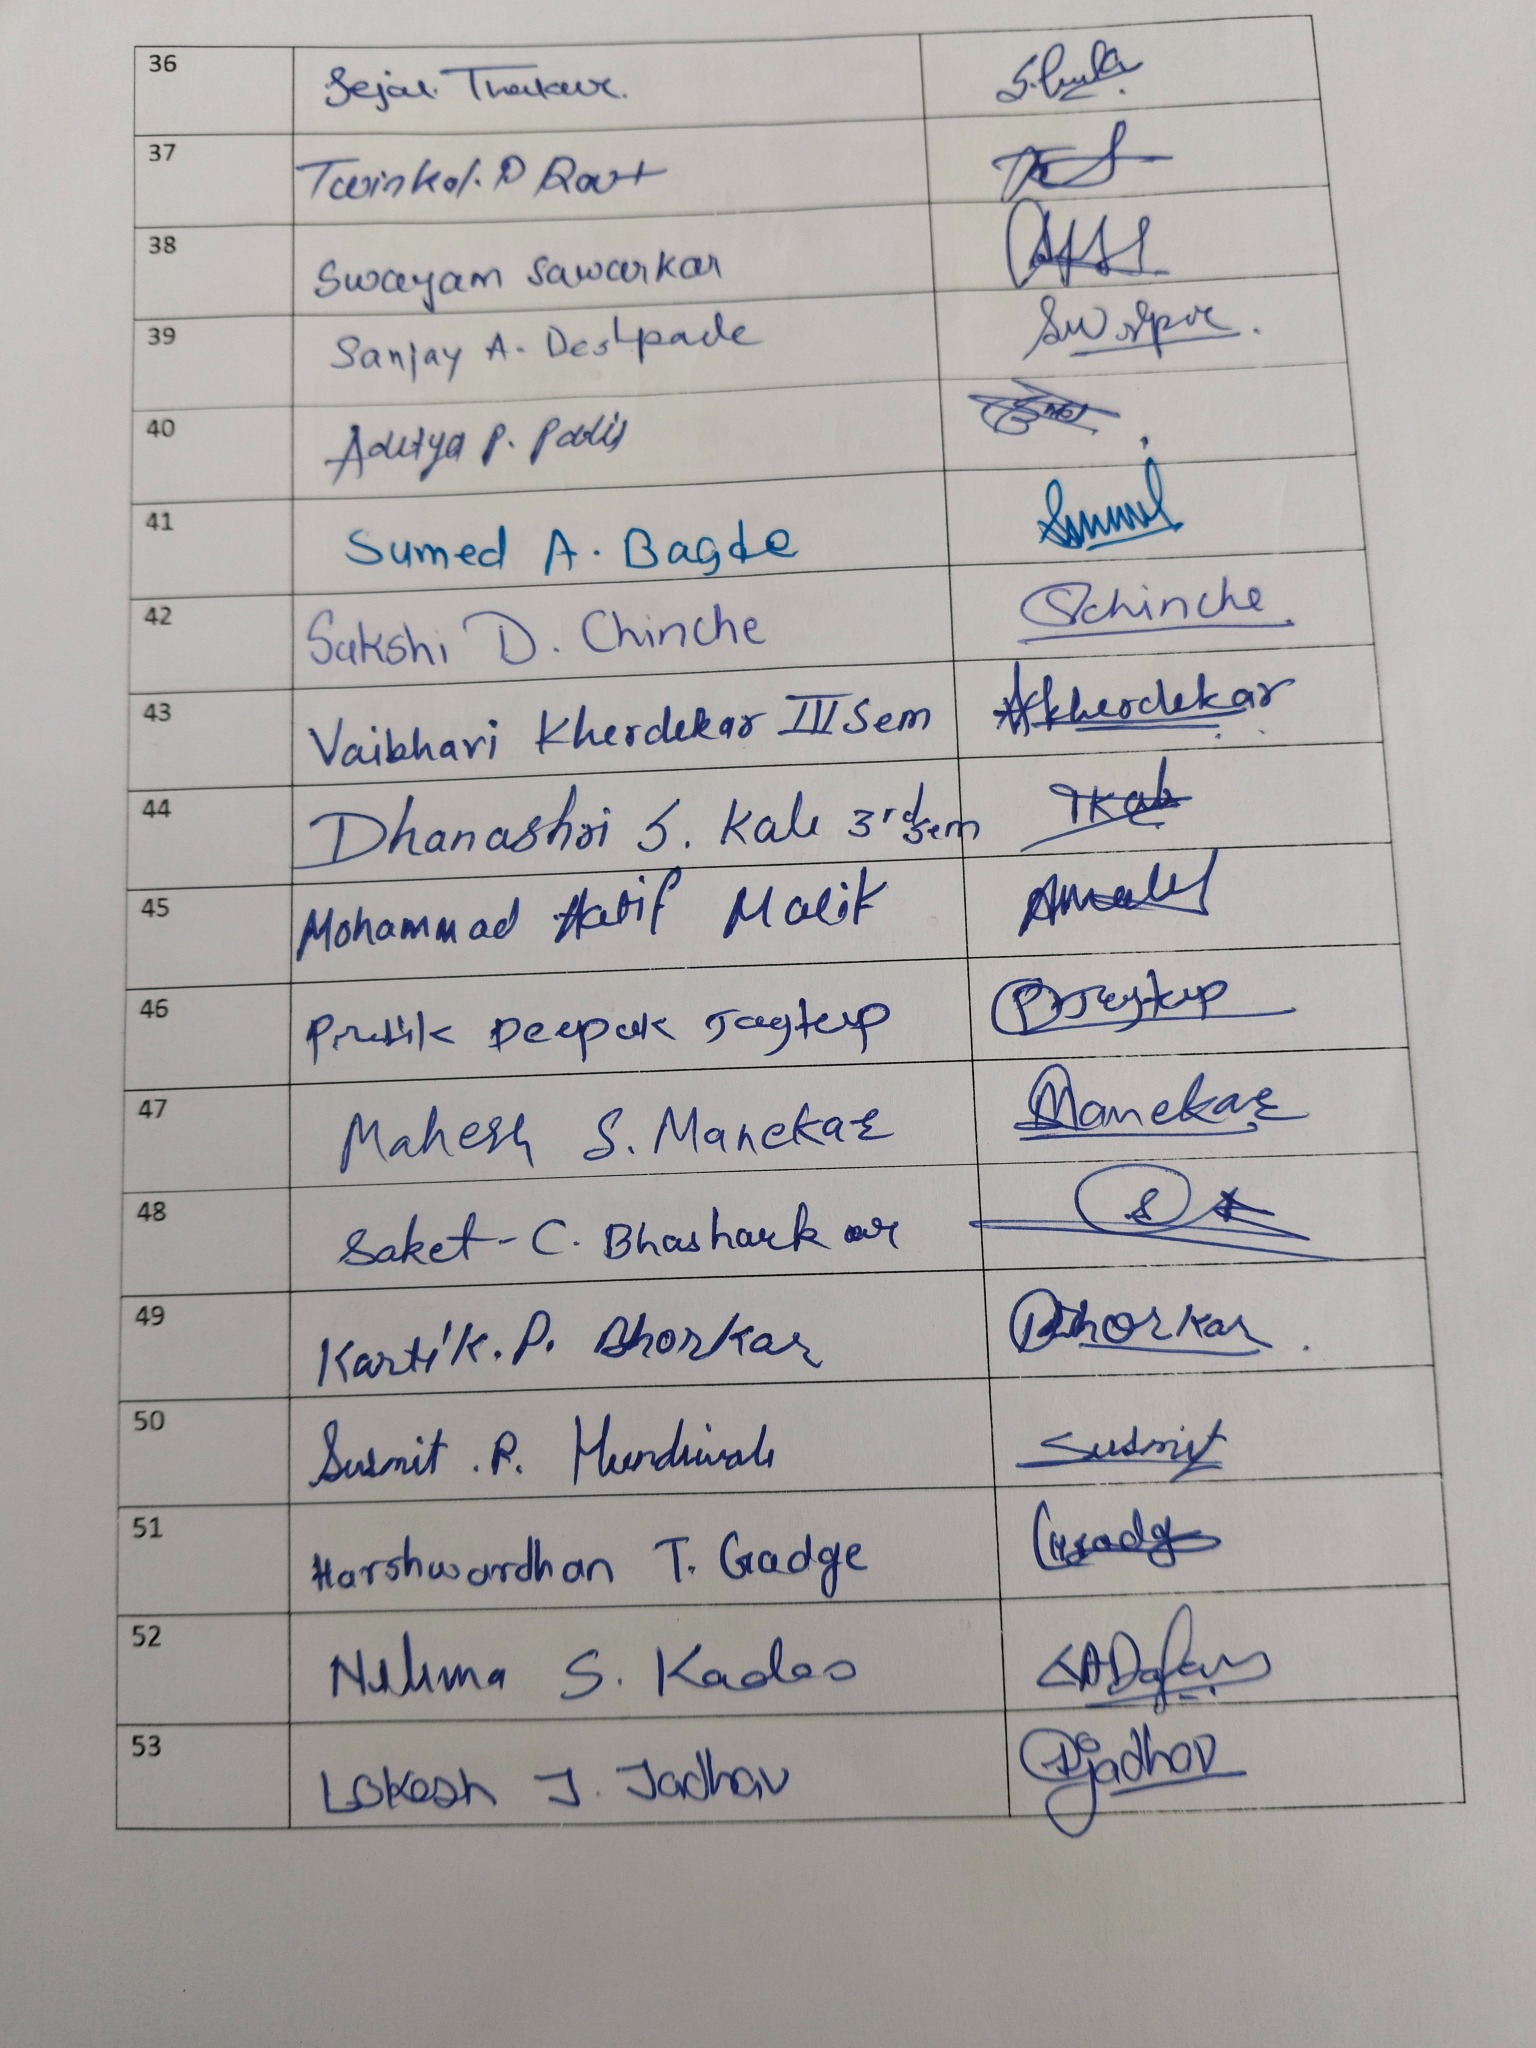 36 Sejal Thakur.
37 Twinkal. D Raut
38 Swayam Sawarkar
39 Sanjay A. Deshpade
40 Aditya P.
41 Sumed A. Bagde
42 Sakshi D. Chinche Schinche
43 Vaibhavi Kherdekar III Sem Kherdekar
44 Dhanashri S. Kale 3rd Sem
45 Mohammad Malik
46 Pratik Deepak Jagtap PJagtap
47 Mahesh S. Manekar Manekar
48 Saket - C. Bhasharkar
49 Kartik. P. Bhorkar Bhorkar
50 Susmit . R. Susmit
51 Harshwardhan T. Gadge Gadge
52 S.
53 Lokesh J. Jadhav Jadhav